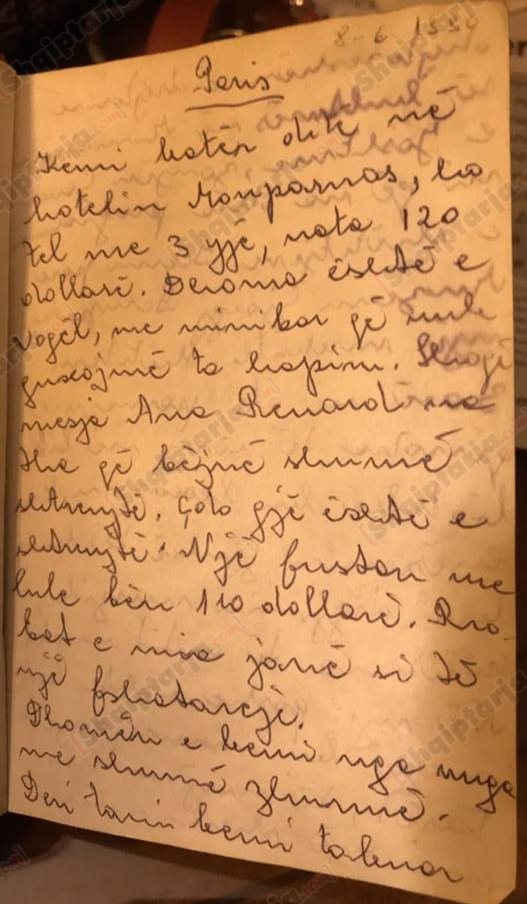 8-6 199
Paris
Kemi katër ditë në
hotelin Monparnas, ho
tel me 3 yjë, nata 120
dollarë. Dhoma është e
vogël, me minibar që nuk
guxojmë ta hapim. Shoqë
nesja Ana Renard na
tha që bëjnë shumë
shtrenjtë. Çdo gjë është e
shtrenjtë. Një fustan me
lule bën 110 dollarë. Rro-
bat e mia janë si të
një fshatarçje.
Dhomën e kemi nga rruga
me shumë zhurmë.
Deri tani kemi takuar